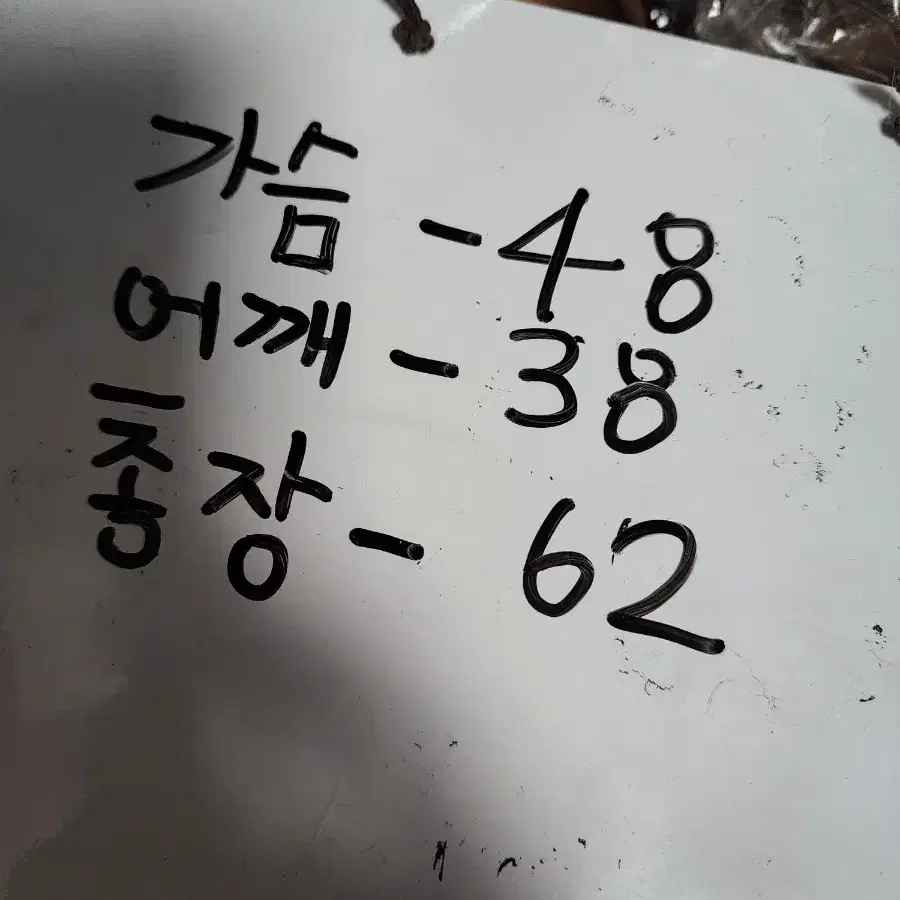 가슴 - 48
어깨 - 38
총장 - 62